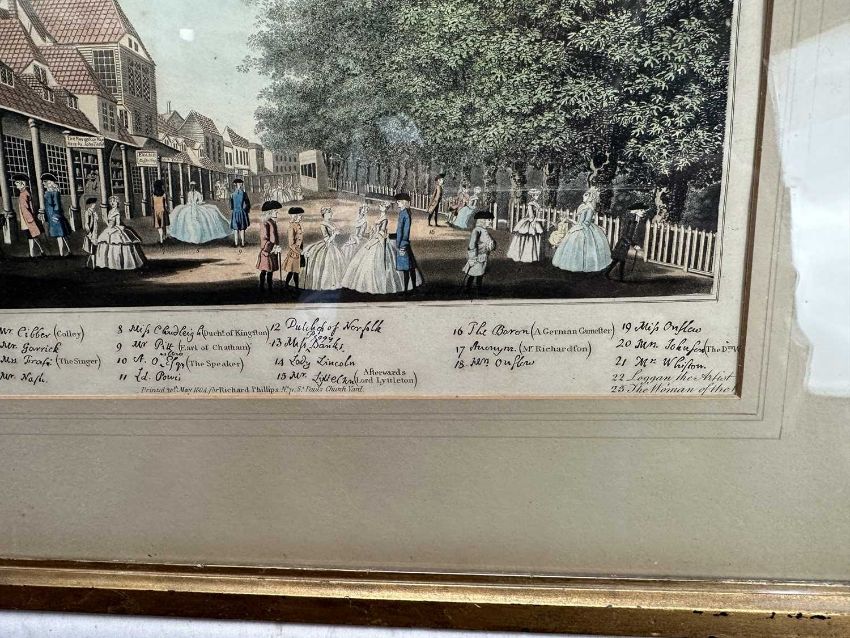 Mr Cibber (Colley) 8 Miss Chudleigh (Duchs. of Kingston) 12 Dutchss of Norfolk 16 The Baron (A German Gamester) 19 Miss Onslow
Mr Garrick 9 Mr Pitt (Earl of Chatham) 13 Miss Peggy Banks 17 Anonym. (Mr Richardson) 20 Mrs Johnson (The Dns W
(The Singer) 10 A. Onslow Esqr (The Speaker) 14 Lady Lincoln 18 Mrs Onslow 21 Mr Whiston
Mr Nash. 11 Ld. Powis 15 Mr Lyttelton Afterwards Lord Lyttleton) 22 Loggan the Artist
23 The Woman of the
Printed 30th May 1804 for Richard Phillips St. Pauls Church Yard.